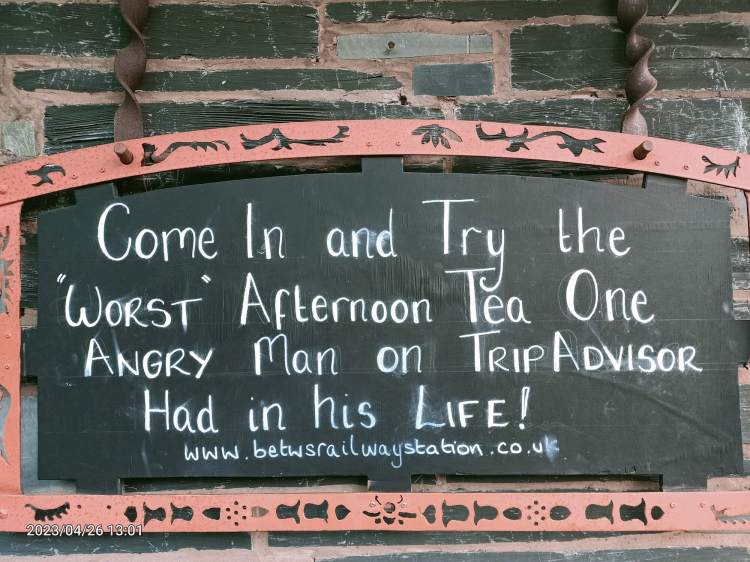 Come In and Try the
"WORST" Afternoon Tea One
ANGRY Man on TRIPADVISOR
Had in his LIFE!
www.betwsrailwaystation.co.uk
2023/04/26 13:01